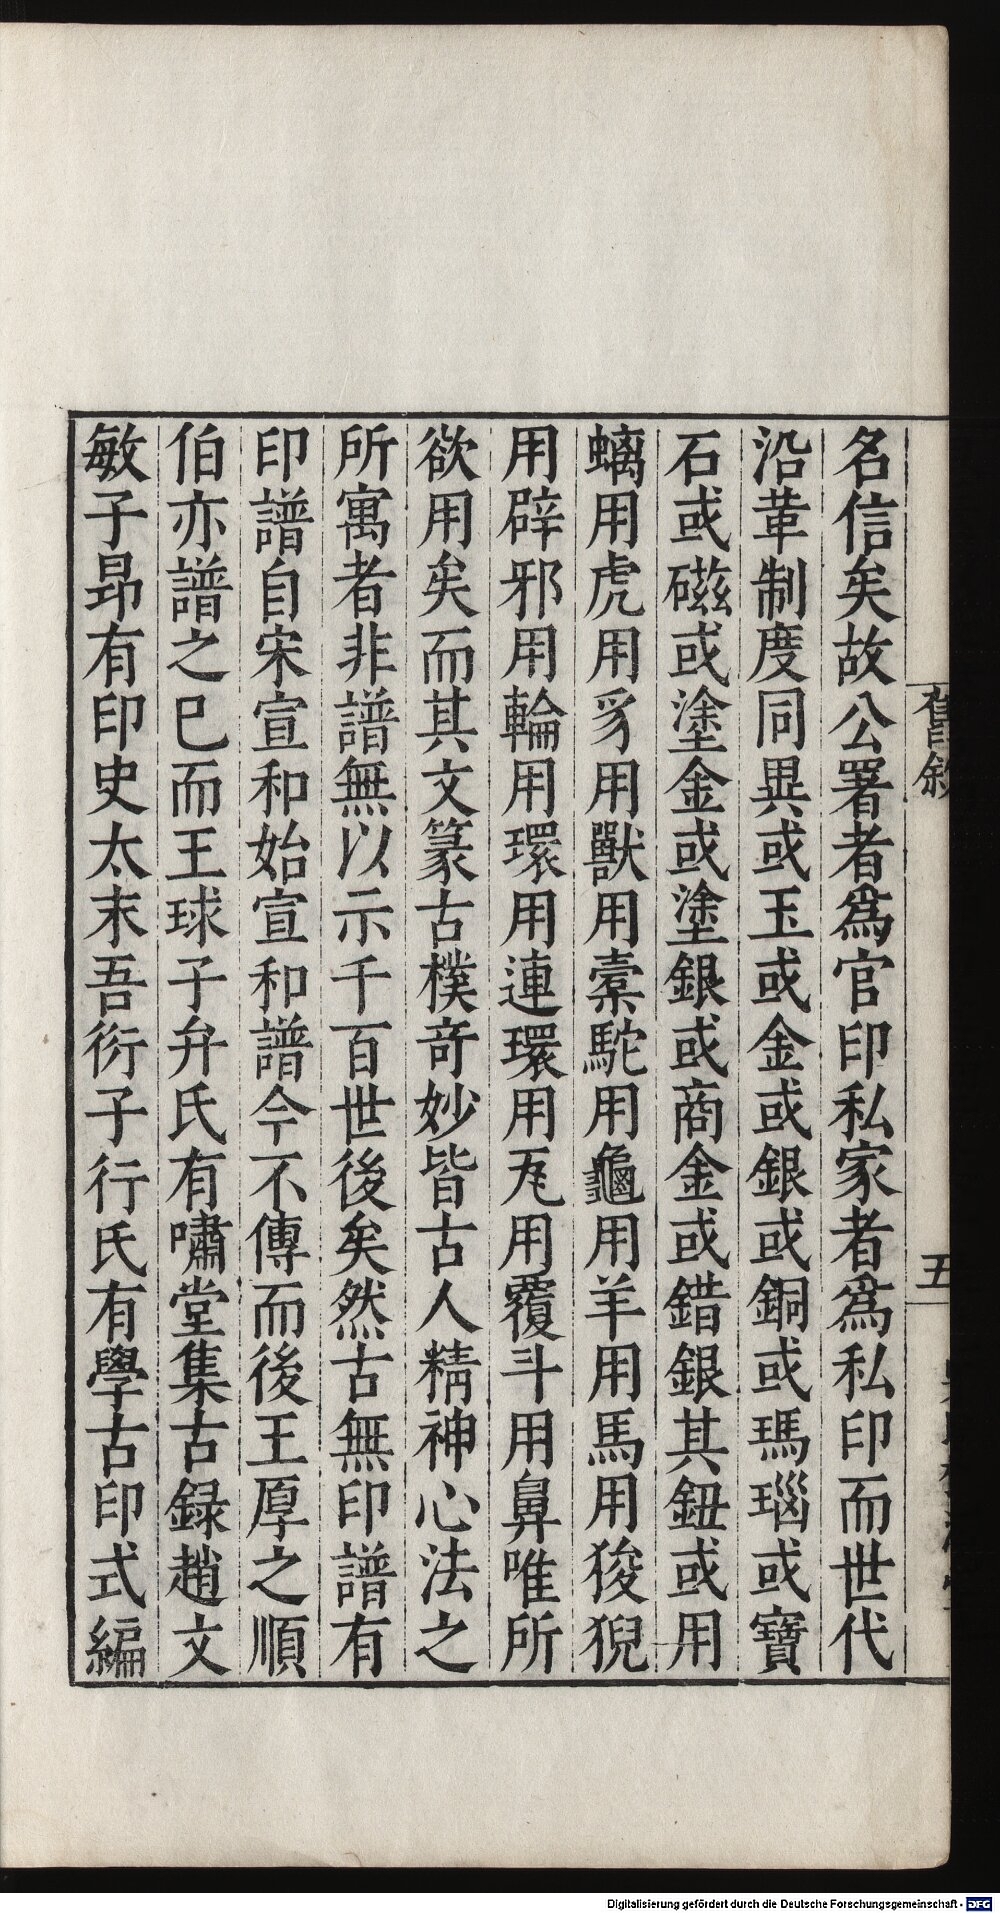 名信矣故公署者爲官印私家者爲私印而世代
沿革制度同異或玉或金或銀或銅或瑪瑙或寶
石或磁或塗金或塗銀或商金或錯銀其鈕或用
螭用虎用豸用獸用槖駝用龜用羊用馬用狻猊
用辟邪用輪用環用連環用瓦用覆斗用鼻唯所
欲用矣而其文篆古樸奇妙皆古人精神心法之
所寓者非譜無以示千百世後矣然古無印譜有
印譜自宋宣和始宣和譜今不傳而後王厚之順
伯亦譜之已而王球子弁氏有嘯堂集古録趙文
敏子昂有印史太末吾衍子行氏有學古印式編
舊敘
五
Digitalisierung gefördert durch die Deutsche Forschungsgemeinschaft - DFG